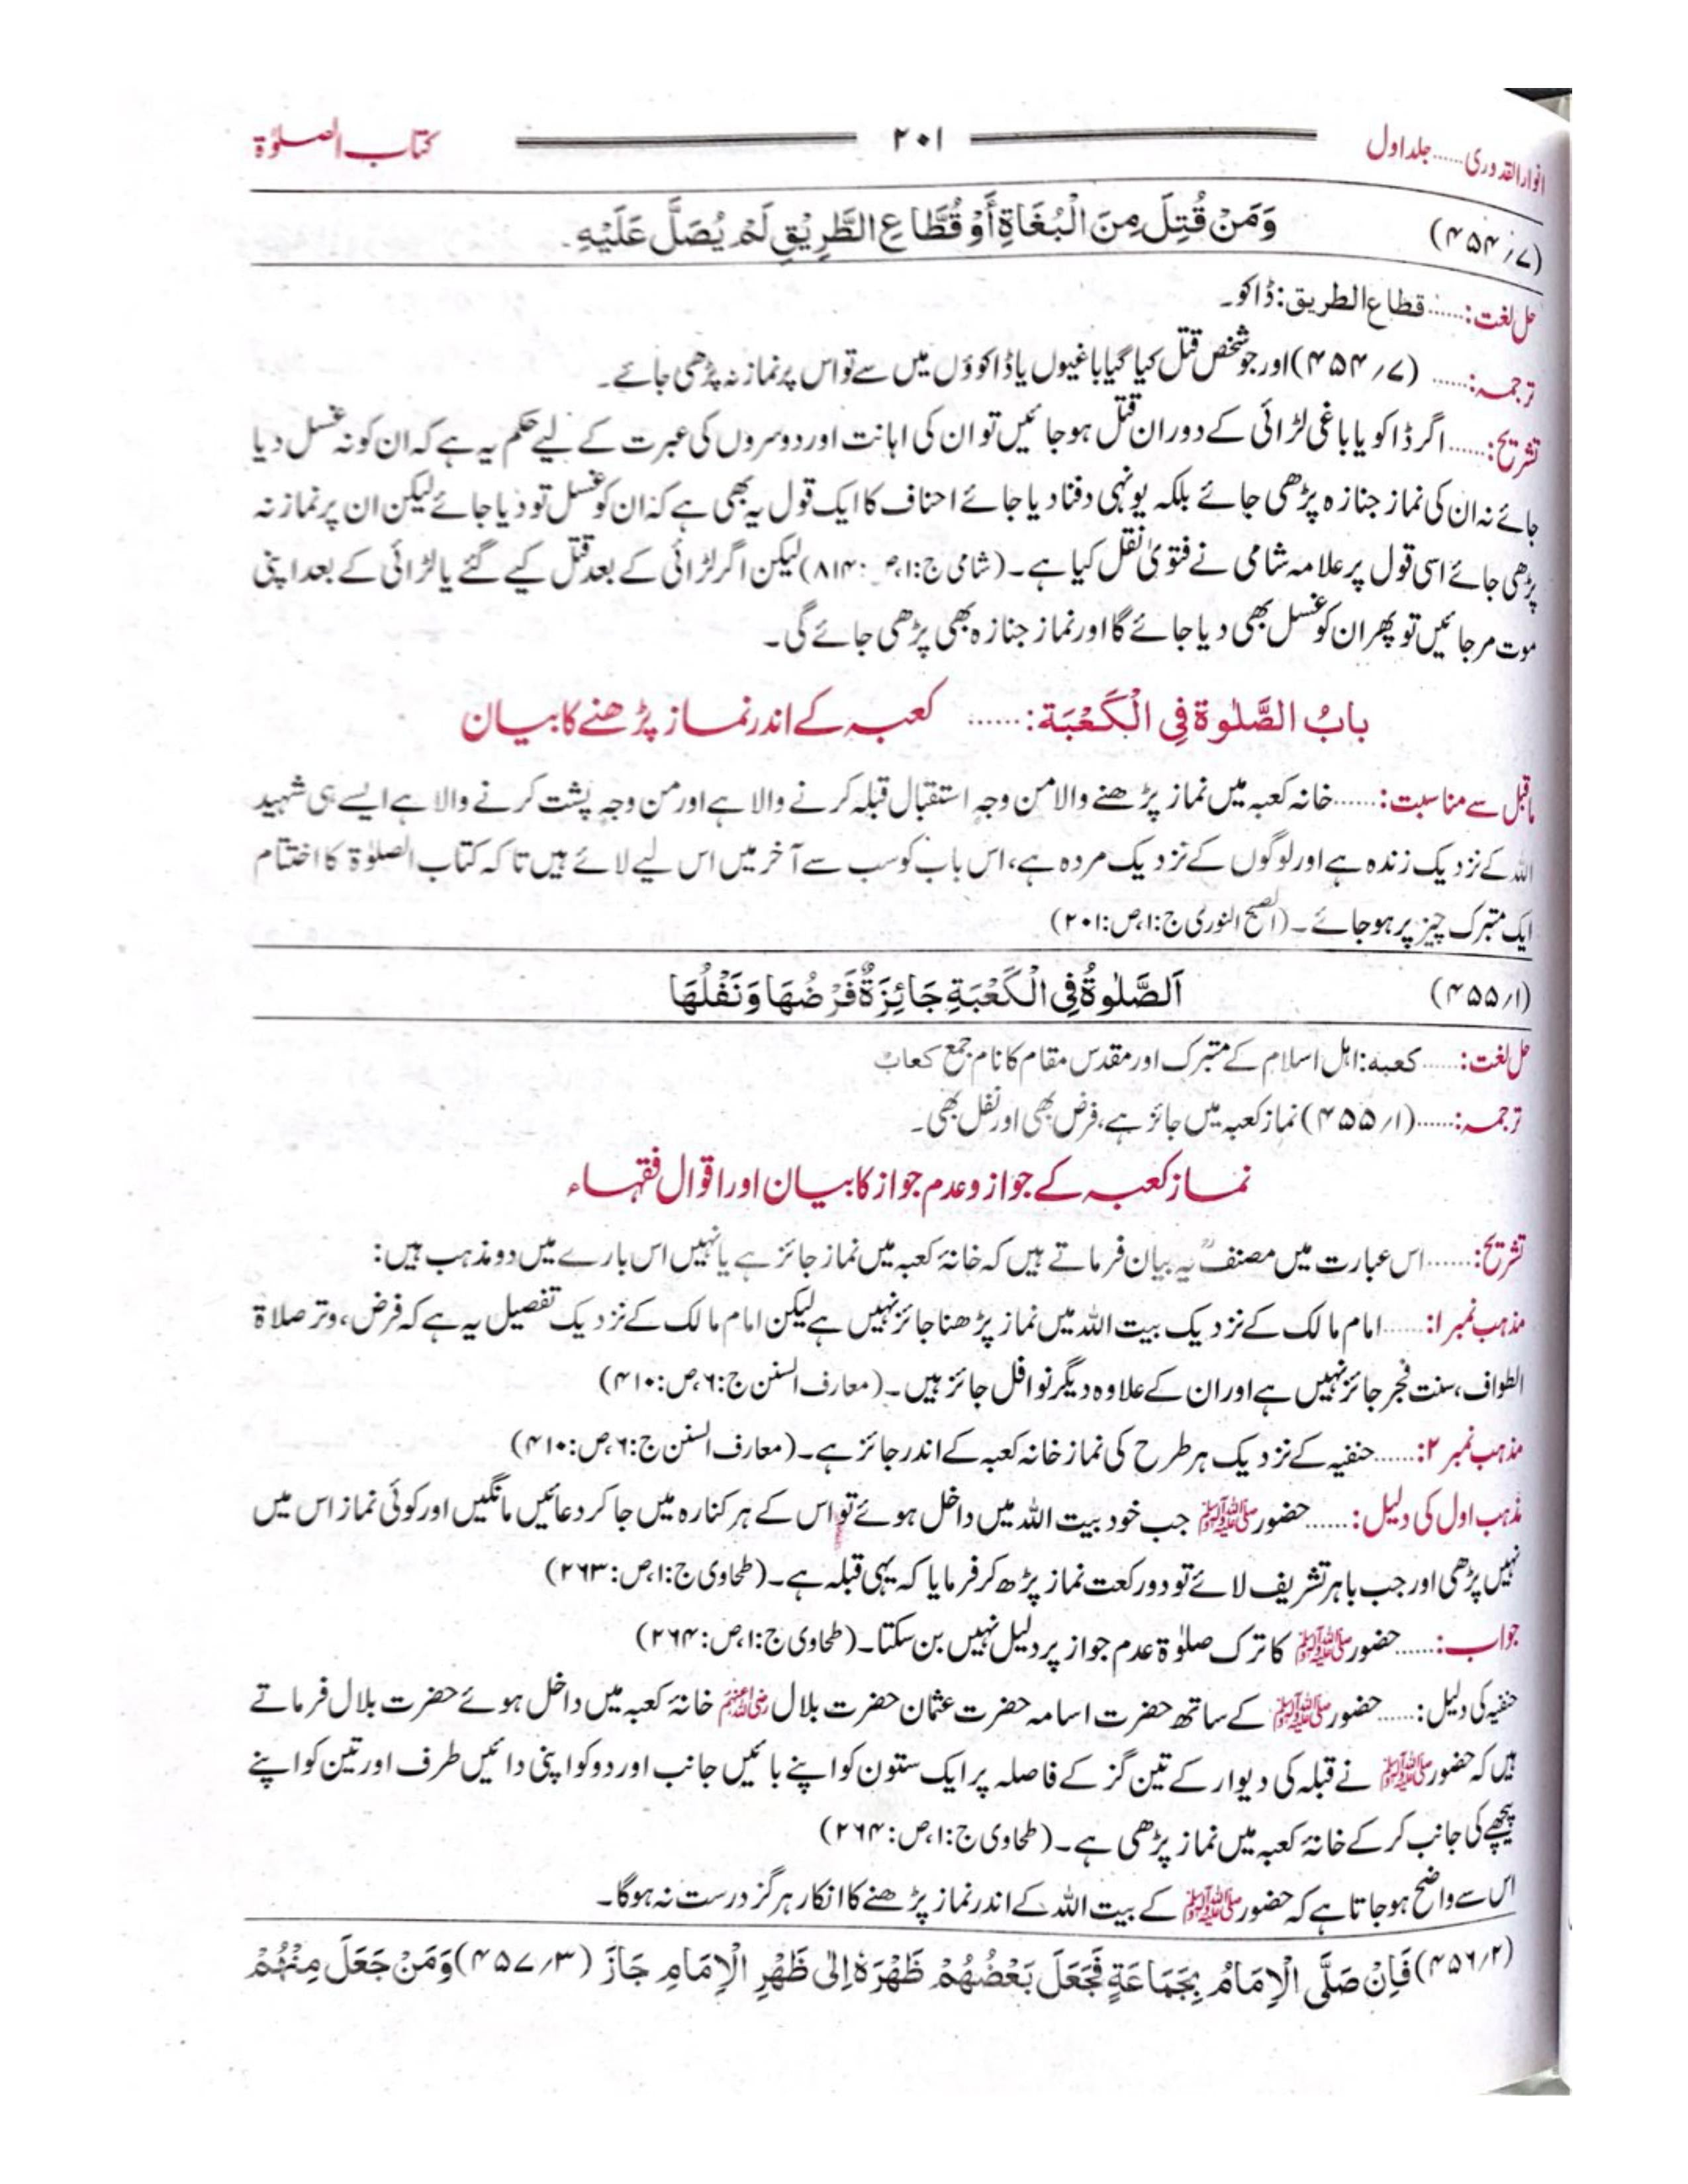 انوار القدوری......جلد اول ۲۰۱ کتاب الصلوٰۃ
(۴۵۴/۷) وَمَنْ قُتِلَ مِنَ الْبُغَاةِ أَوْ قُطَّاعِ الطَّرِيْقِ لَمْ يُصَلَّ عَلَيْهِ۔
حل لغت:...... قطاع الطریق: ڈاکو۔
ترجمہ:...... (۴۵۴/۷) اور جو شخص قتل کیا گیا باغیوں یا ڈاکوؤں میں سے تو اس پر نماز نہ پڑھی جائے۔
تشریح:...... اگر ڈاکو یا باغی لڑائی کے دوران قتل ہو جائیں تو ان کی اہانت اور دوسروں کی عبرت کے لیے حکم یہ ہے کہ ان کو نہ غسل دیا
جائے نہ ان کی نماز جنازہ پڑھی جائے بلکہ یونہی دفنا دیا جائے احناف کا ایک قول یہ بھی ہے کہ ان کو غسل تو دیا جائے لیکن ان پر نماز نہ
پڑھی جائے اسی قول پر علامہ شامی نے فتویٰ نقل کیا ہے۔ (شامی ج:۱، ص:۸۱۴) لیکن اگر لڑائی کے بعد قتل کیے گئے یا لڑائی کے بعد اپنی
موت مر جائیں تو پھر ان کو غسل بھی دیا جائے گا اور نماز جنازہ بھی پڑھی جائے گی۔
بابُ الصَّلٰوة فِي الْكَعْبَة:...... کعبہ کے اندر نماز پڑھنے کا بیان
ماقبل سے مناسبت:...... خانہ کعبہ میں نماز پڑھنے والا من وجہ استقبال قبلہ کرنے والا ہے اور من وجہ پشت کرنے والا ہے ایسے ہی شہید
اللہ کے نزدیک زندہ ہے اور لوگوں کے نزدیک مردہ ہے، اس باب کو سب سے آخر میں اس لیے لائے ہیں تا کہ کتاب الصلوٰۃ کا اختتام
ایک متبرک چیز پر ہو جائے۔ (الصح النوری ج:۱، ص:۲۰۱)
(۴۵۵/۱) اَلصَّلٰوةُ فِي الْكَعْبَةِ جَائِزَةٌ فَرْضُهَا وَنَفْلُهَا
حل لغت:...... کعبہ: اہل اسلام کے متبرک اور مقدس مقام کا نام جمع کعاب
ترجمہ:...... (۴۵۵/۱) نماز کعبہ میں جائز ہے، فرض بھی اور نفل بھی۔
نماز کعبہ کے جواز و عدم جواز کا بیان اور اقوال فقہاء
تشریح:...... اس عبارت میں مصنفؒ یہ بیان فرماتے ہیں کہ خانۂ کعبہ میں نماز جائز ہے یا نہیں اس بارے میں دو مذہب ہیں:
مذہب نمبر ۱:...... امام مالک کے نزدیک بیت اللہ میں نماز پڑھنا جائز نہیں ہے لیکن امام مالک کے نزدیک تفصیل یہ ہے کہ فرض، وتر صلاۃ
الطواف، سنت فجر جائز نہیں ہے اور ان کے علاوہ دیگر نوافل جائز ہیں۔ (معارف السنن ج:۶، ص:۴۱۰)
مذہب نمبر ۲:...... حنفیہ کے نزدیک ہر طرح کی نماز خانہ کعبہ کے اندر جائز ہے۔ (معارف السنن ج:۶، ص:۴۱۰)
مذہب اول کی دلیل:...... حضور ﷺ جب خود بیت اللہ میں داخل ہوئے تو اس کے ہر کنارہ میں جا کر دعائیں مانگیں اور کوئی نماز اس میں
نہیں پڑھی اور جب باہر تشریف لائے تو دو رکعت نماز پڑھ کر فرمایا کہ یہی قبلہ ہے۔ (طحاوی ج:۱، ص:۲۶۳)
جواب:...... حضور ﷺ کا ترک صلوٰۃ عدم جواز پر دلیل نہیں بن سکتا۔ (طحاوی ج:۱، ص:۲۶۴)
حنفیہ کی دلیل:...... حضور ﷺ کے ساتھ حضرت اسامہ حضرت عثمان حضرت بلال رضی اللہ عنہم خانۂ کعبہ میں داخل ہوئے حضرت بلال فرماتے
ہیں کہ حضور ﷺ نے قبلہ کی دیوار کے تین گز کے فاصلہ پر ایک ستون کو اپنے بائیں جانب اور دو کو اپنی دائیں طرف اور تین کو اپنے
پیچھے کی جانب کر کے خانۂ کعبہ میں نماز پڑھی ہے۔ (طحاوی ج:۱، ص:۲۶۴)
اس سے واضح ہو جاتا ہے کہ حضور ﷺ کے بیت اللہ کے اندر نماز پڑھنے کا انکار ہرگز درست نہ ہوگا۔
(۴۵۶/۲) فَإِنْ صَلَّى الْإِمَامُ بِجَمَاعَةٍ فَجَعَلَ بَعْضُهُمْ ظَهْرَهٗ إِلٰى ظَهْرِ الْإِمَامِ جَازَ (۴۵۷/۳) وَمَنْ جَعَلَ مِنْهُمْ